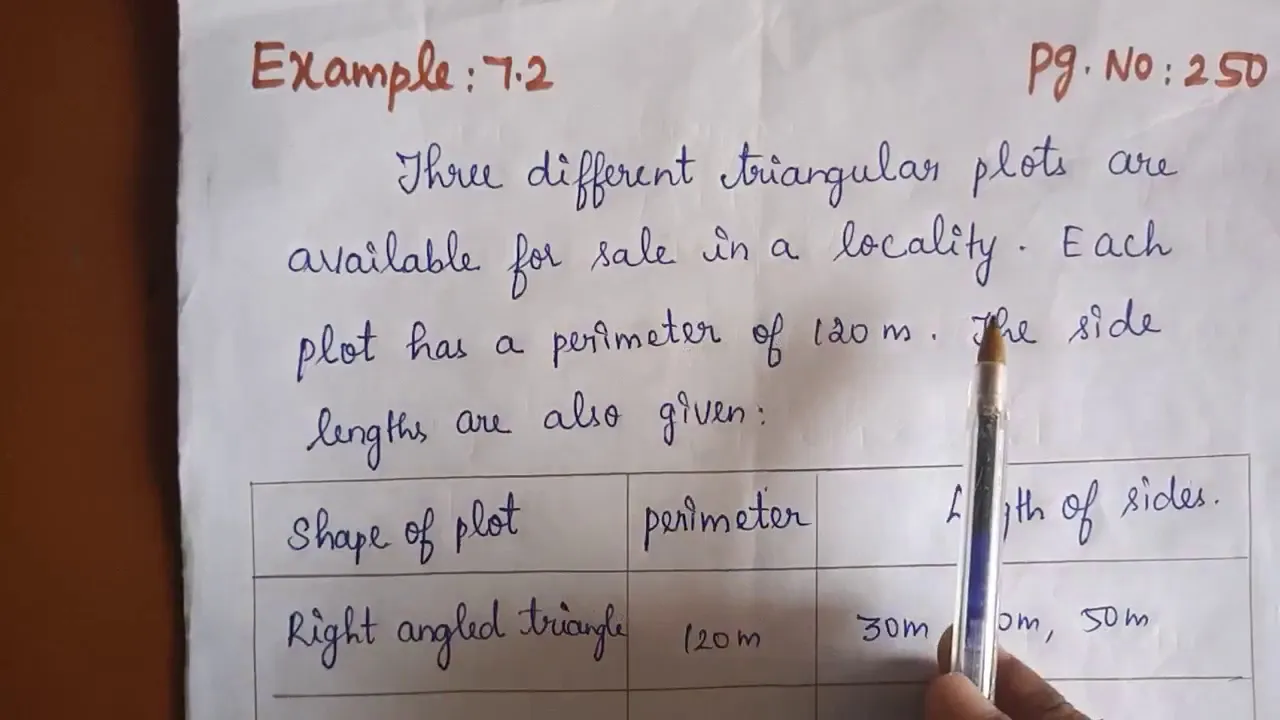 Example: 7.2 Pg. No: 250
Three different triangular plots are
available for sale in a locality. Each
plot has a perimeter of 120 m. The side
lengths are also given:
Shape of plot perimeter of sides.
Right angled triangle 120m 30m 50m